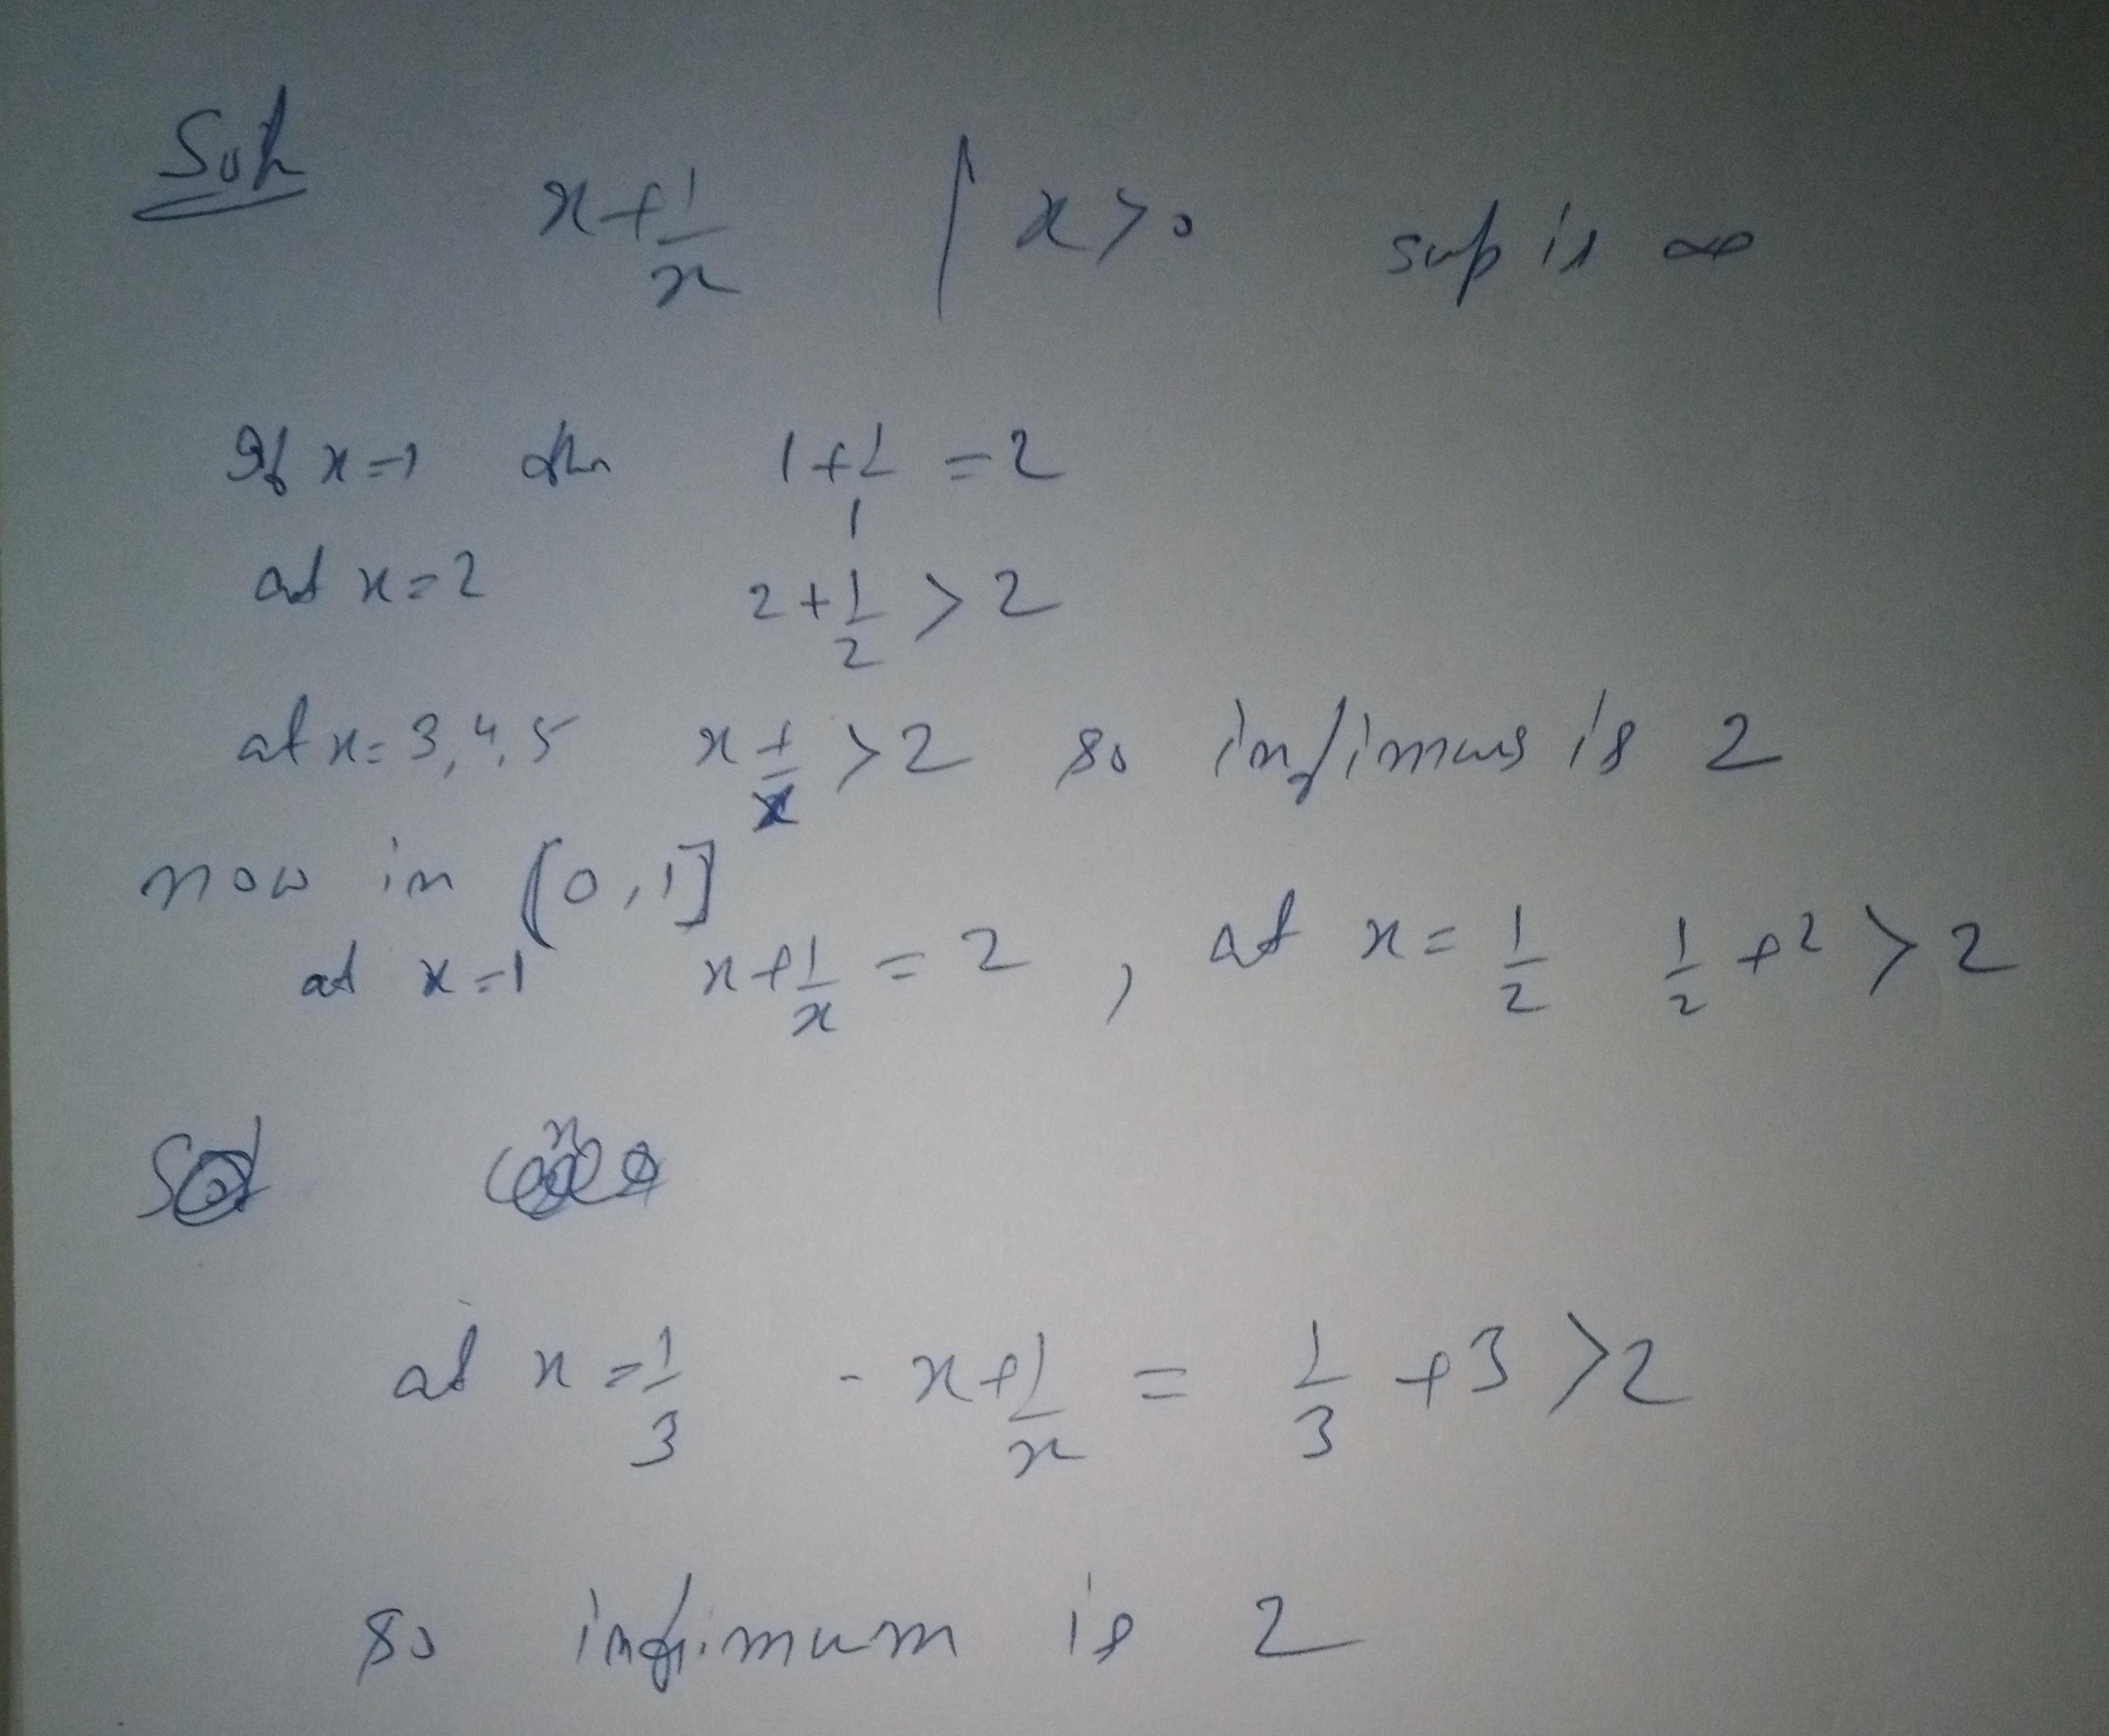 Soln x + 1/x | x > 0 sup is ∞
If x = 1 then 1 + 1/1 = 2
at x = 2 2 + 1/2 > 2
at x = 3, 4, 5 x + 1/x > 2 so infimus is 2
now in (0, 1]
at x = 1 x + 1/x = 2 , at x = 1/2 1/2 + 2 > 2
at x = 1/3 - x + 1/x = 1/3 + 3 > 2
so infimum is 2